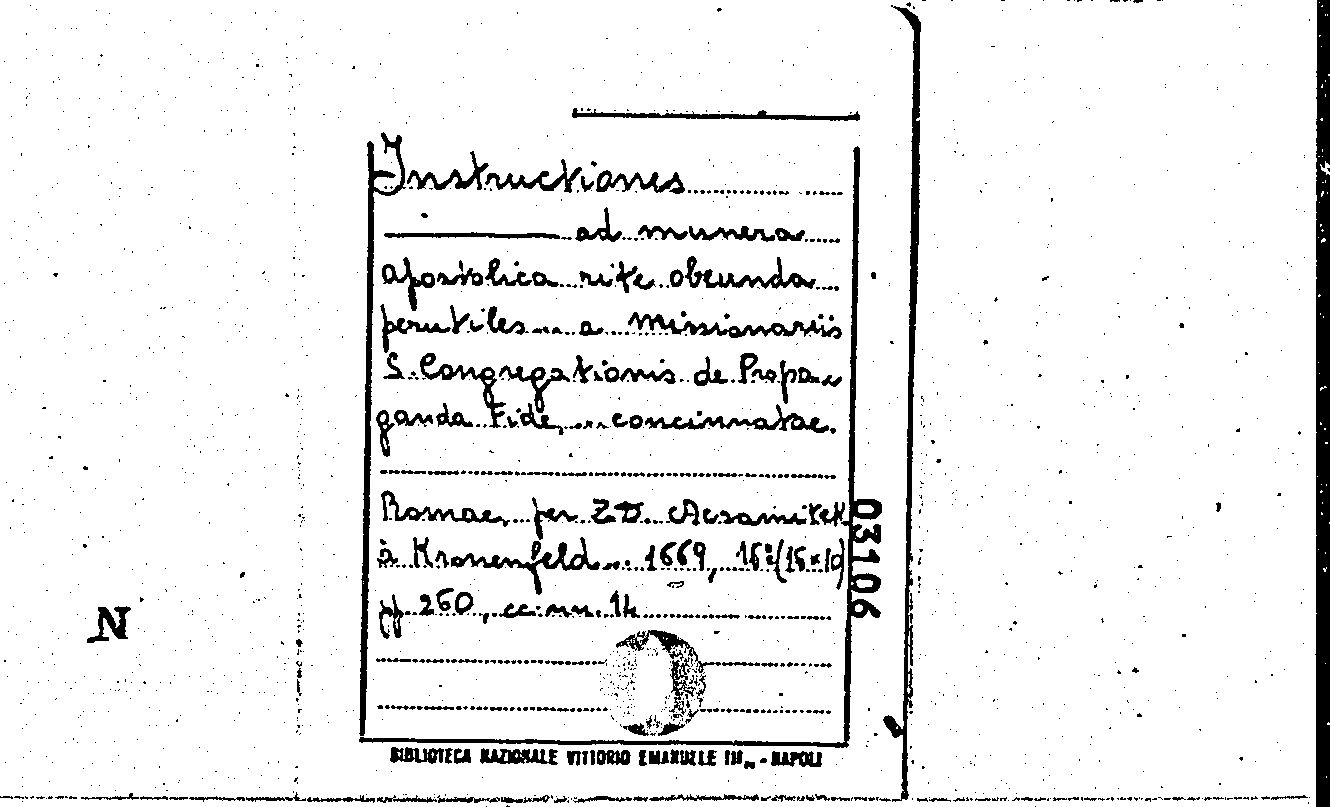 Instructiones
ad munera
apostolica rite obeunda
perutiles... a Missionariis
S. Congregationis de Propa-
ganda Fide,... concinnatae.
Romae, per Z.D. Acsamitek
à Kronenfeld... 1669, 16º (16×10)
pp. 260, cc. nn. 14
03106
N
BIBLIOTECA NAZIONALE VITTORIO EMANUELE III - NAPOLI